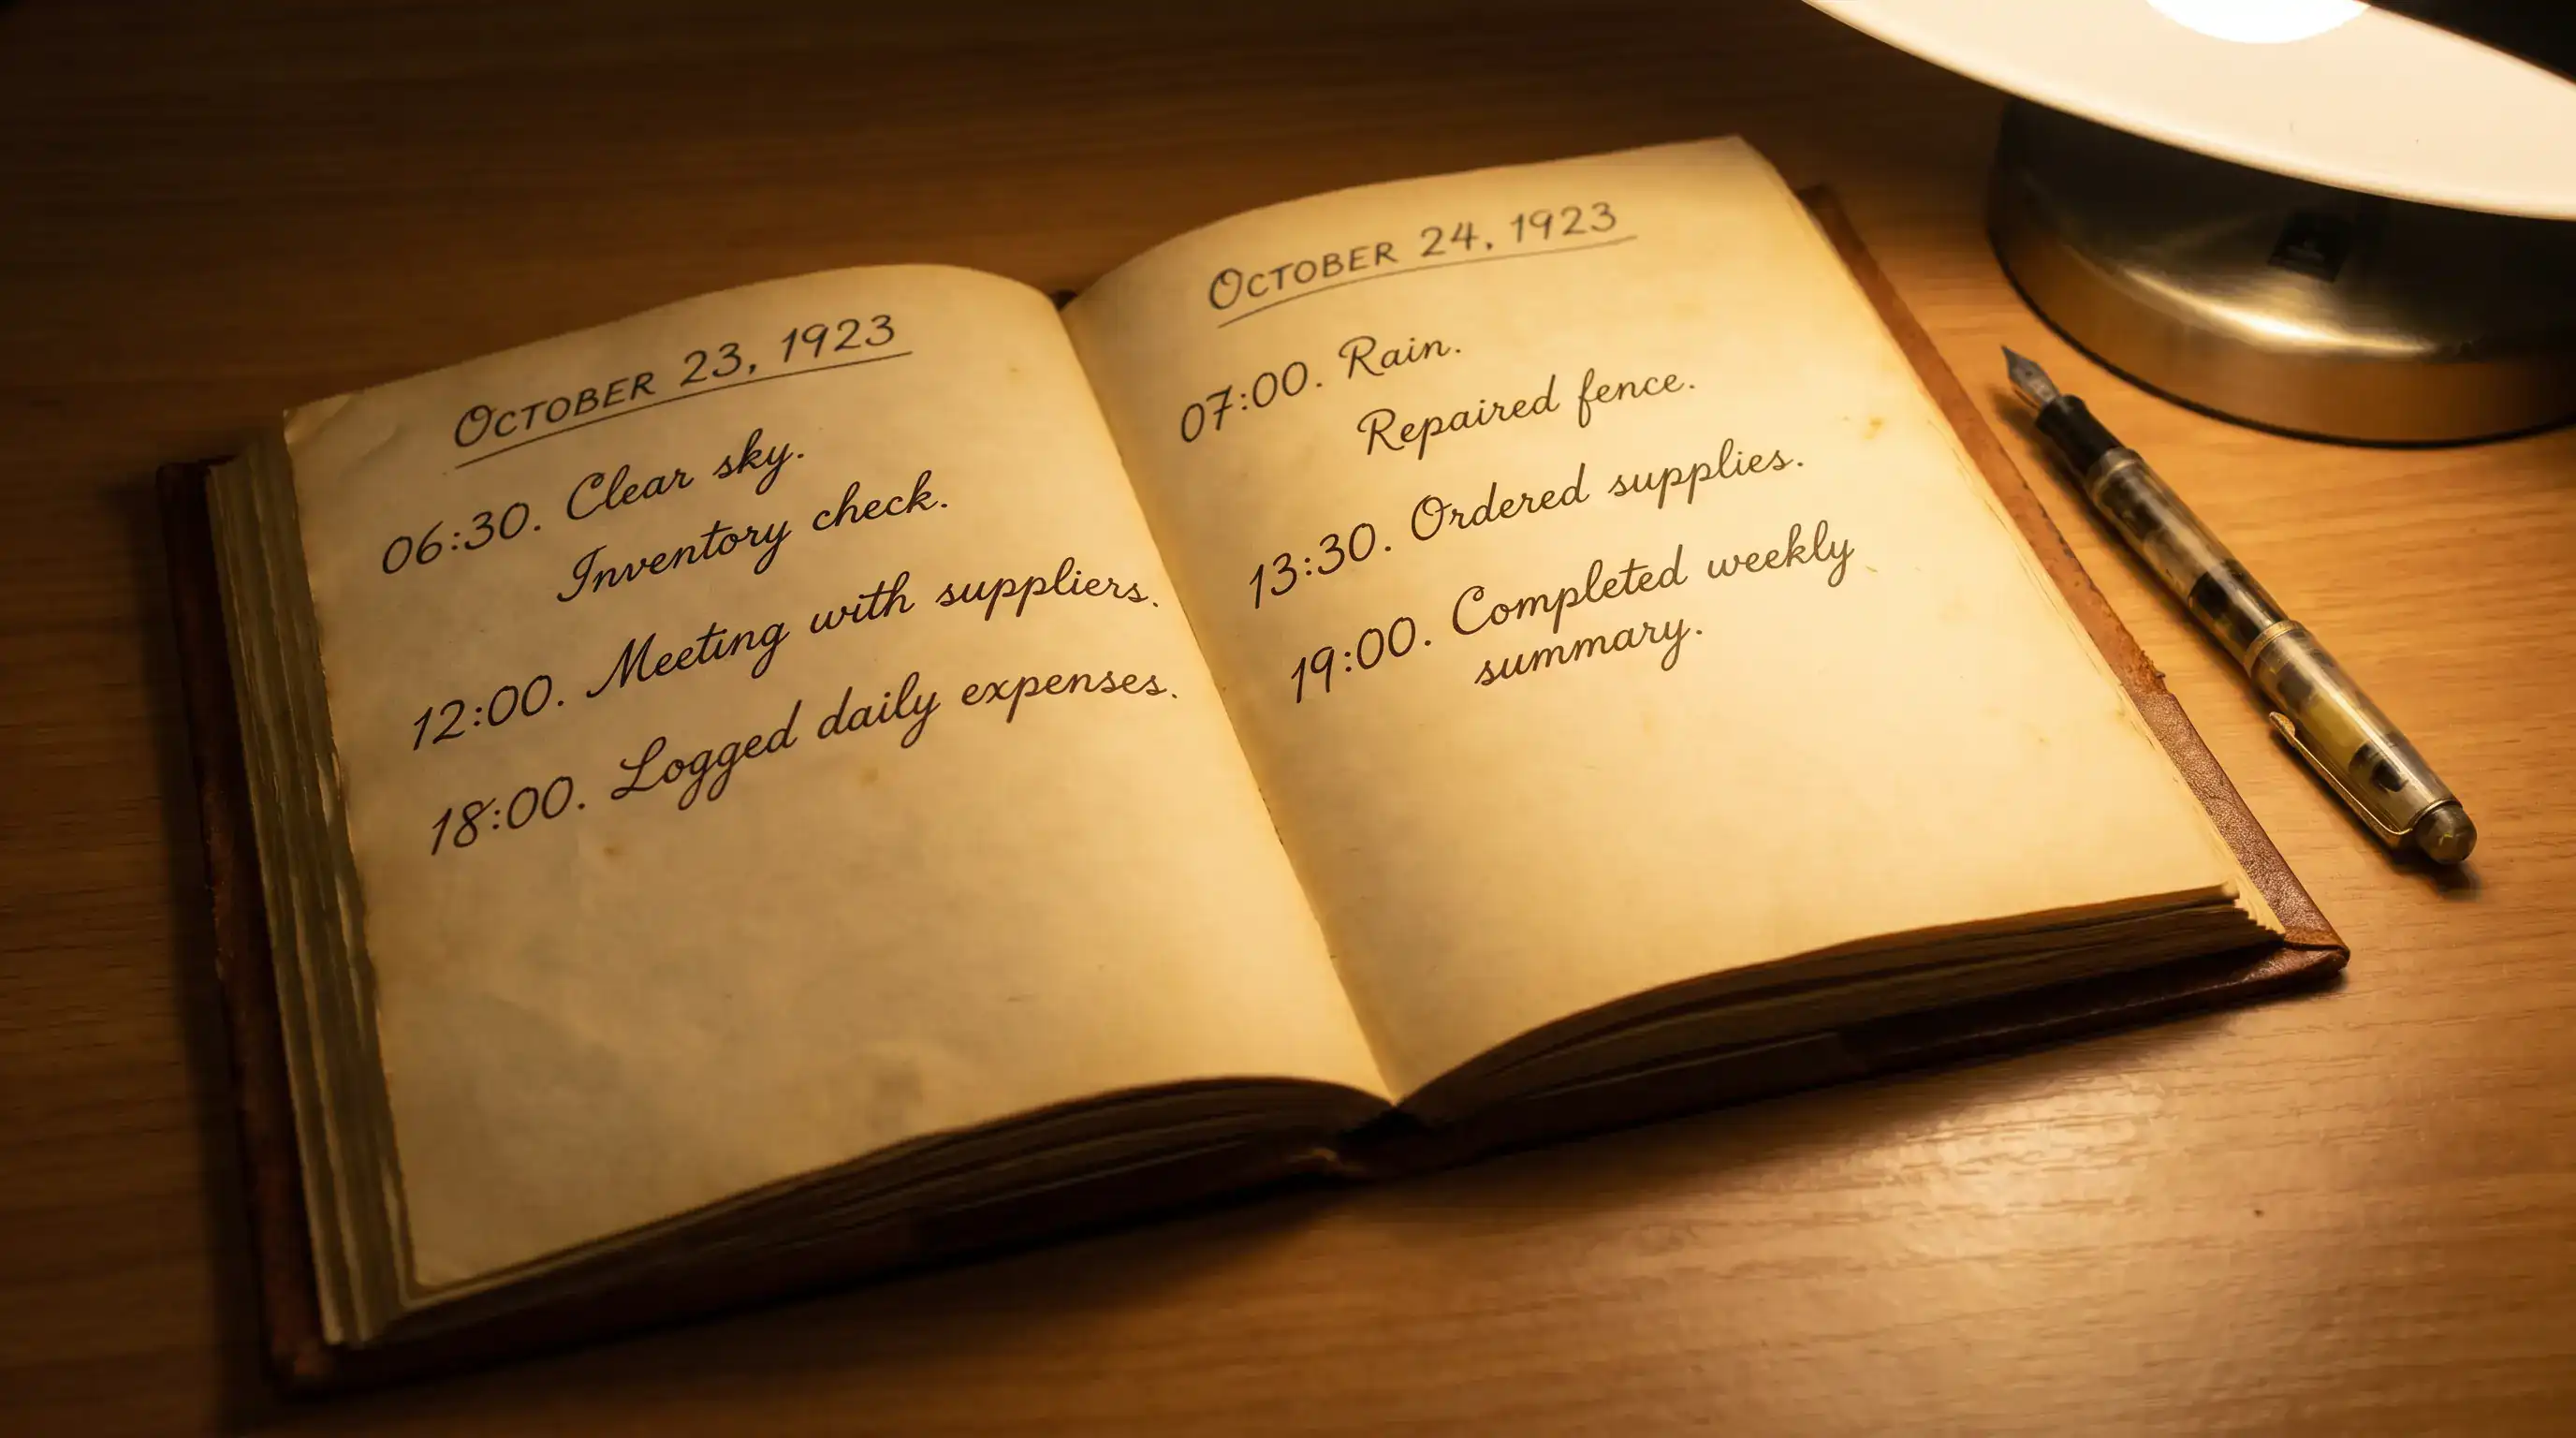 OCTOBER 23, 1923
06:30. Clear sky.
Inventory check.
12:00. Meeting with suppliers.
18:00. Logged daily expenses.
OCTOBER 24, 1923
07:00. Rain.
Repaired fence.
13:30. Ordered supplies.
19:00. Completed weekly
summary.